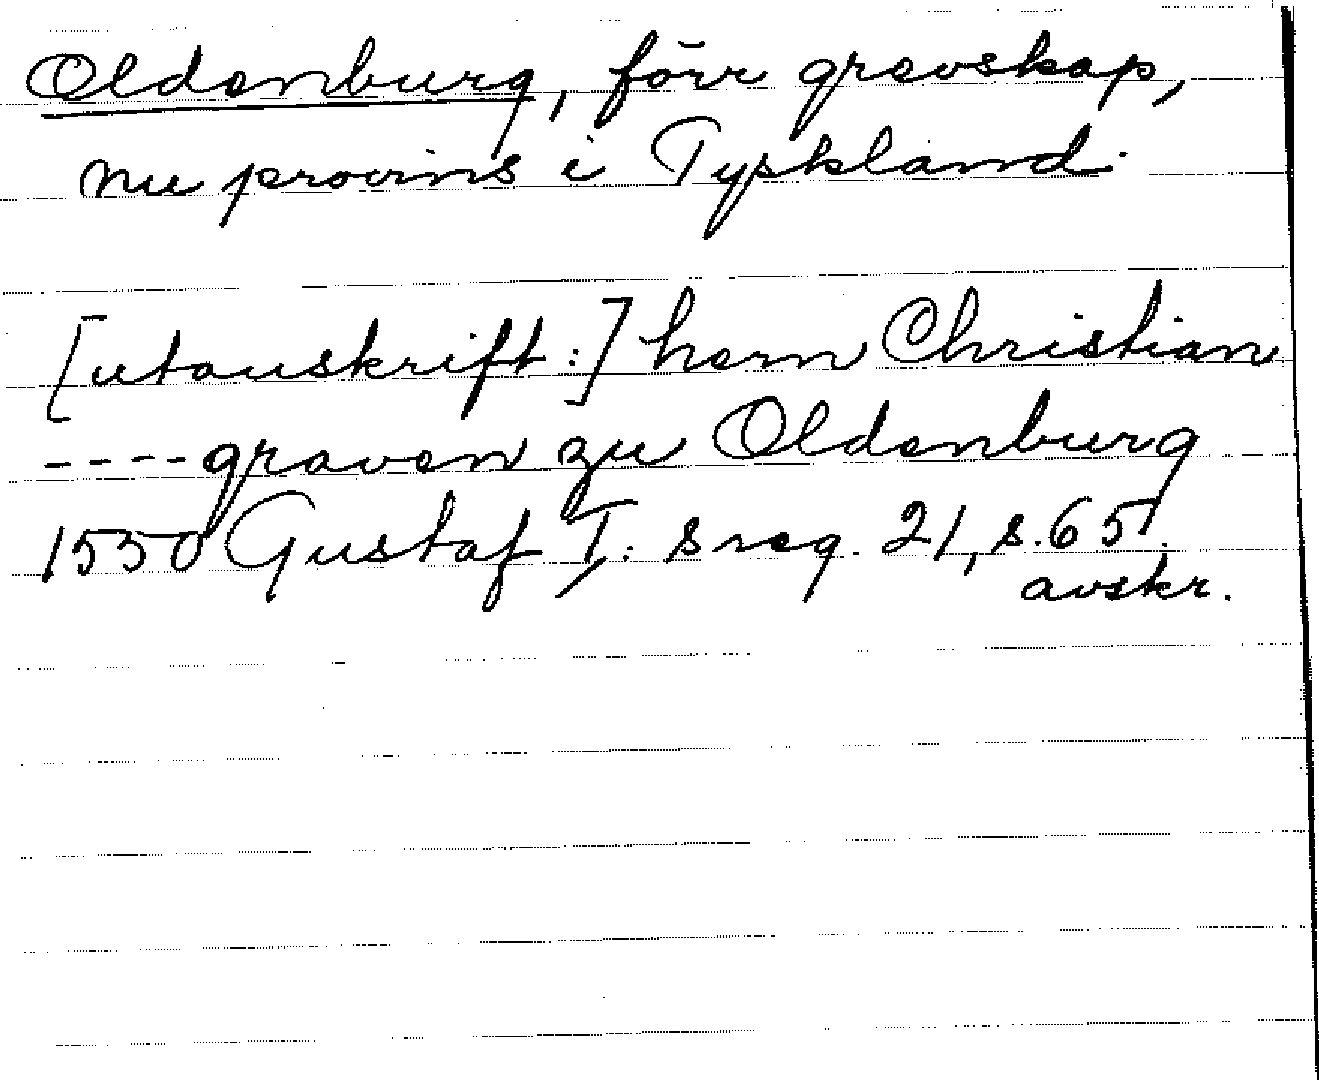 Oldenburg, förr grevskap,
nu provins i Tyskland.
[utanskrift:] hern Christian
----graven zu Oldenburg
1550 Gustaf I:s reg. 21, s. 65.
avskr.